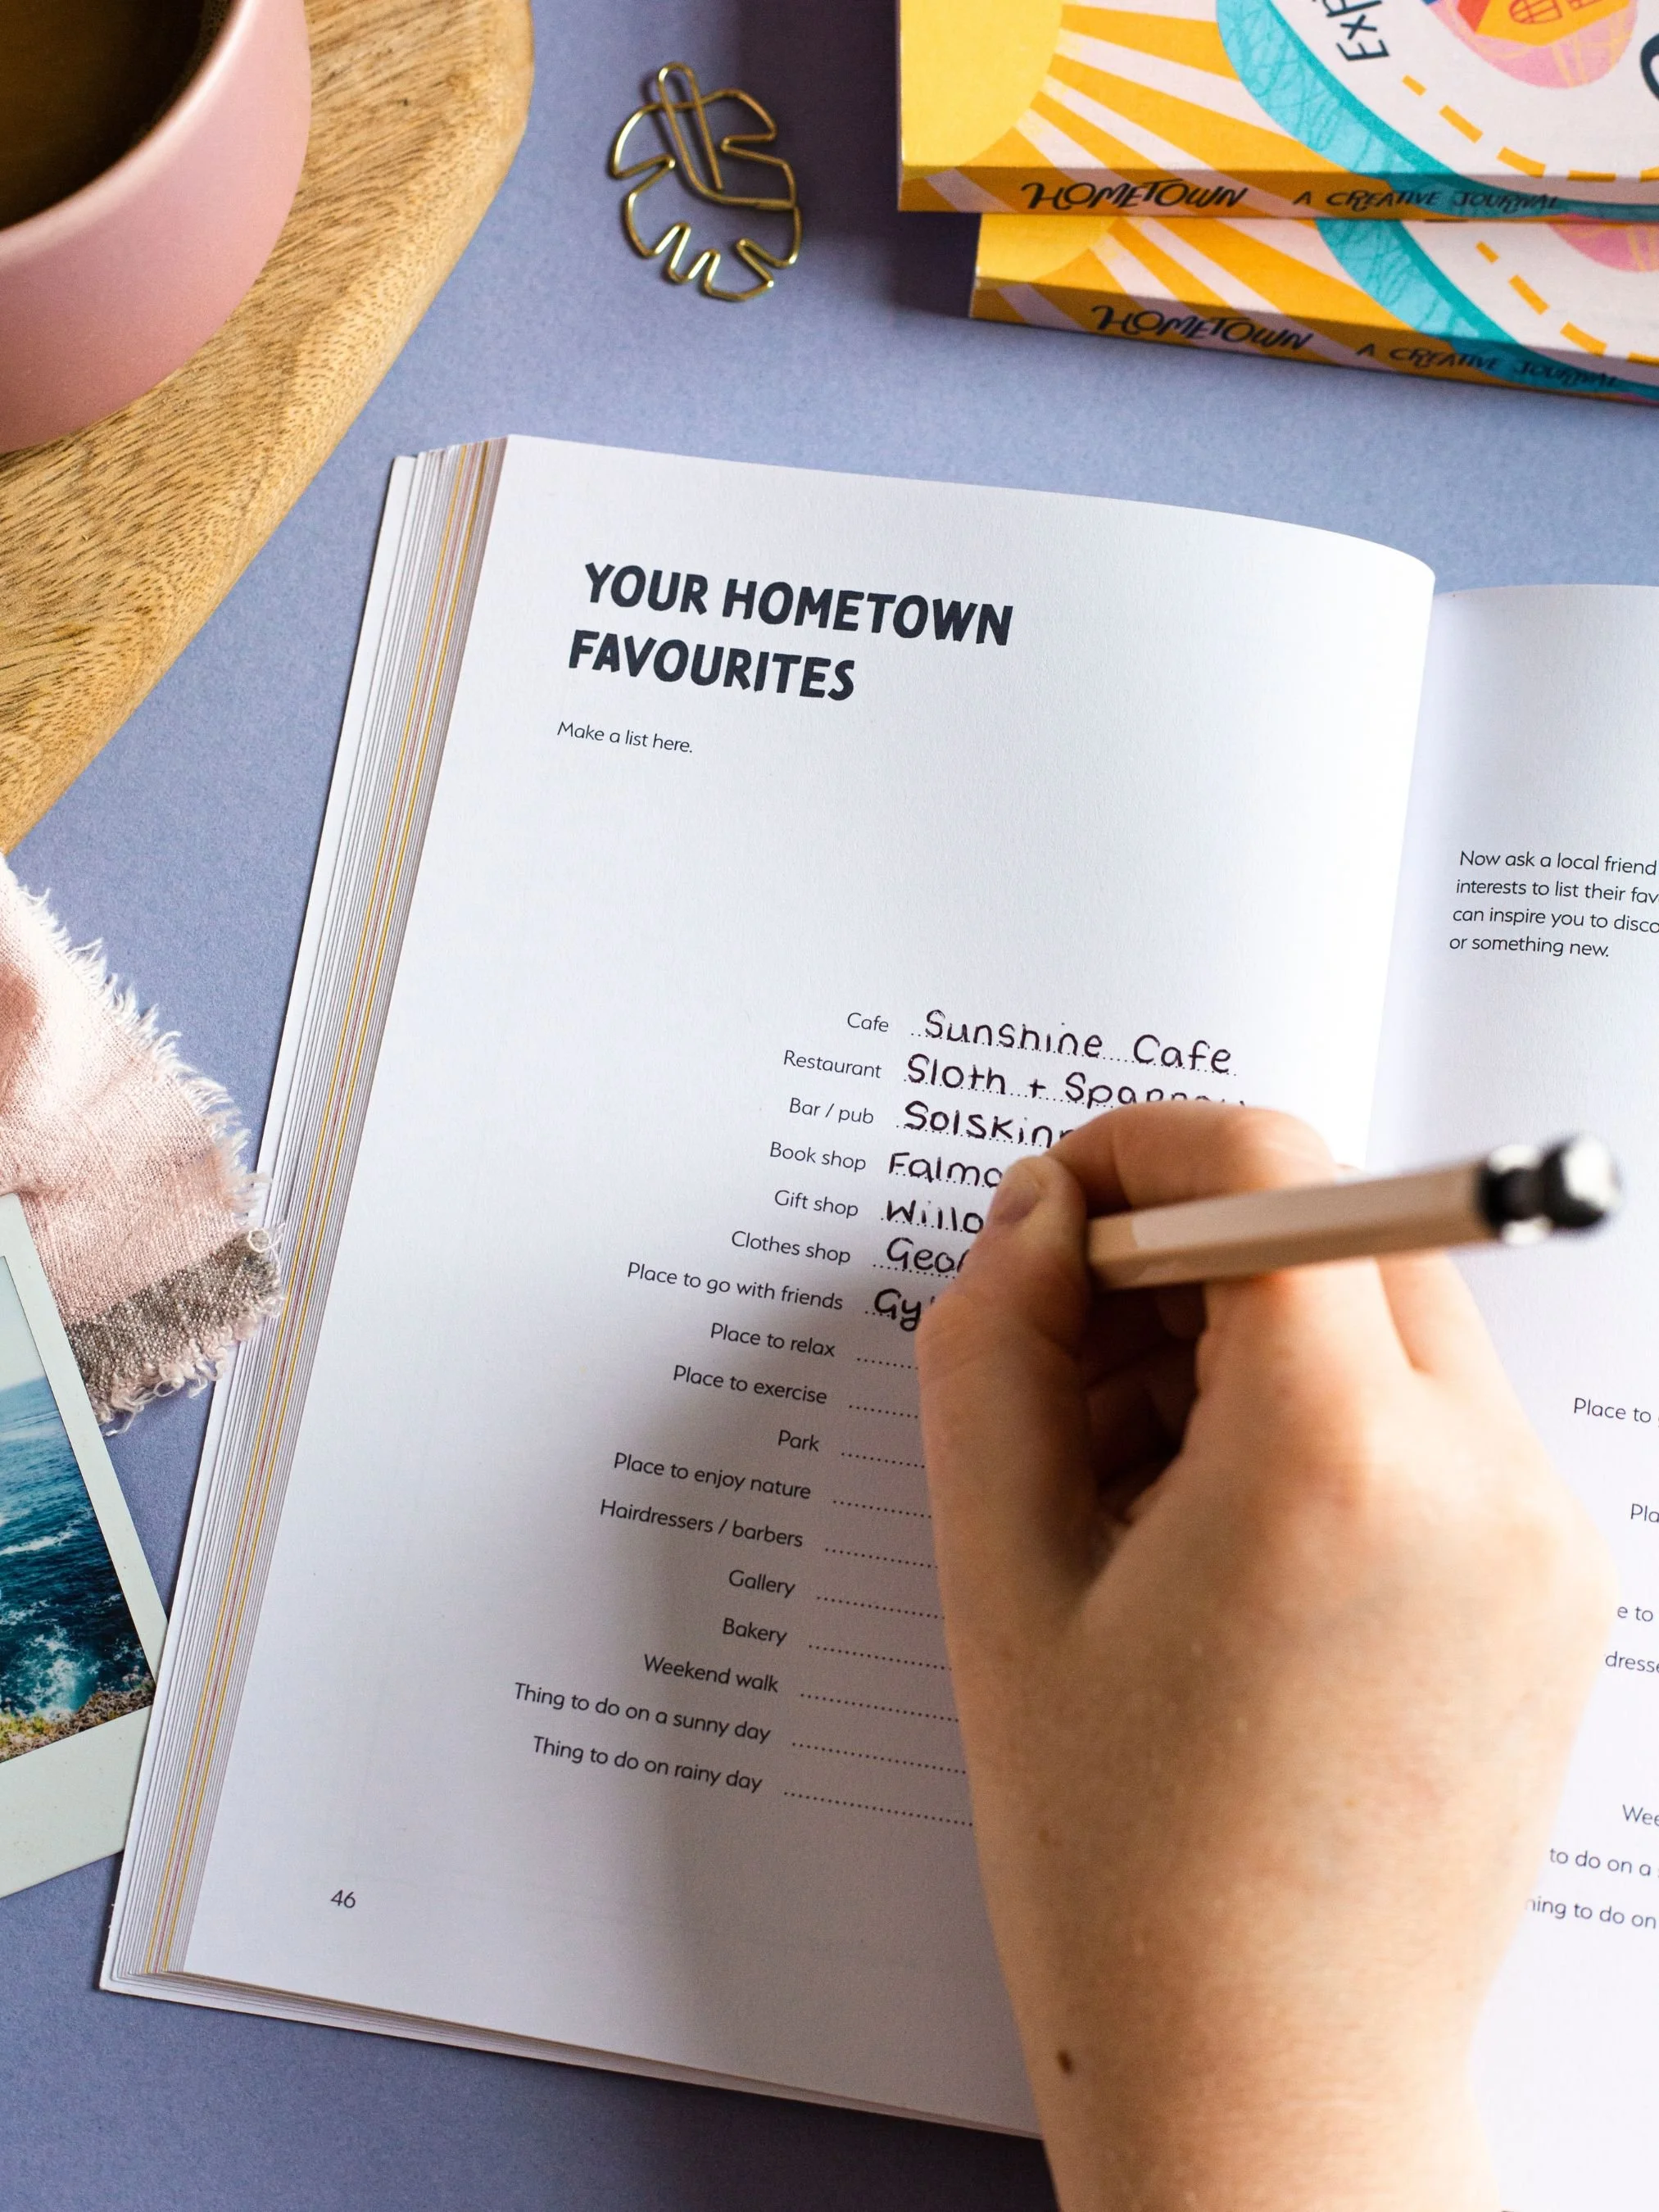 HOMETOWN A CREATIVE JOURNAL
HOMETOWN A CREATIVE JOURNAL
YOUR HOMETOWN
FAVOURITES
Make a list here.
Cafe Sunshine Cafe
Restaurant Sloth +
Bar / pub
Book shop
Gift shop
Clothes shop
Place to go with friends
Place to relax
Place to exercise
Park
Place to enjoy nature
Hairdressers / barbers
Gallery
Bakery
Weekend walk
Thing to do on a sunny day
Thing to do on rainy day
46
Now ask a local friend
interests to list their
can inspire you to
or something new.
Place to
to
to do on a
to do on